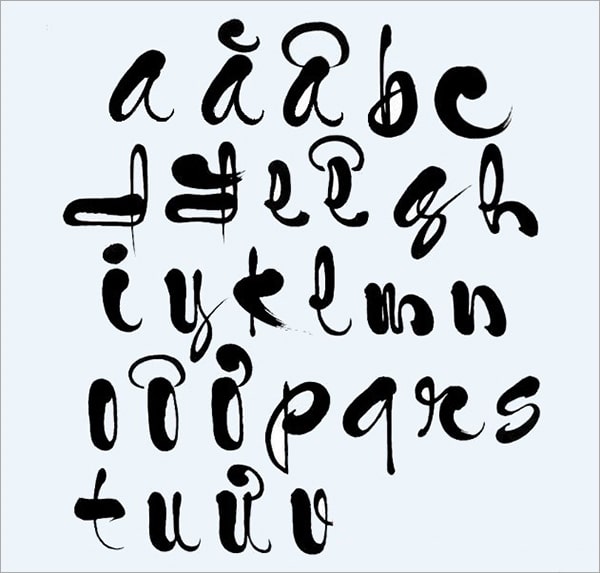 a ă â b c
d đ e ê g h
i y k l m n
o ô ơ p q r s
t u ư v